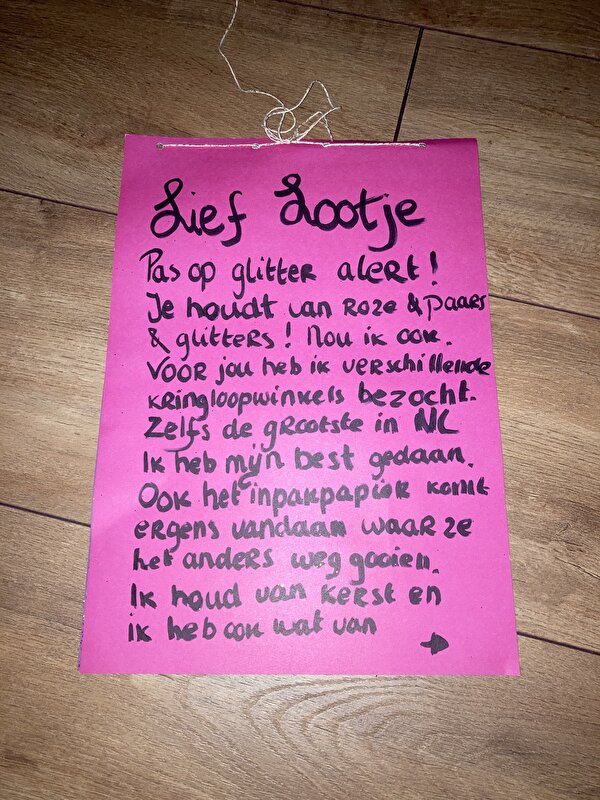 Lief Lootje
Pas op glitter alert!
Je houdt van Roze & paars
& glitters! Nou ik ook.
Voor jou heb ik verschillende
kringloopwinkels bezocht.
Zelfs de grootste in NL
Ik heb mijn best gedaan.
Ook het inpakpapier komt
ergens vandaan waar ze
het anders weg gooien.
Ik houd van kerst en
ik heb ook wat van